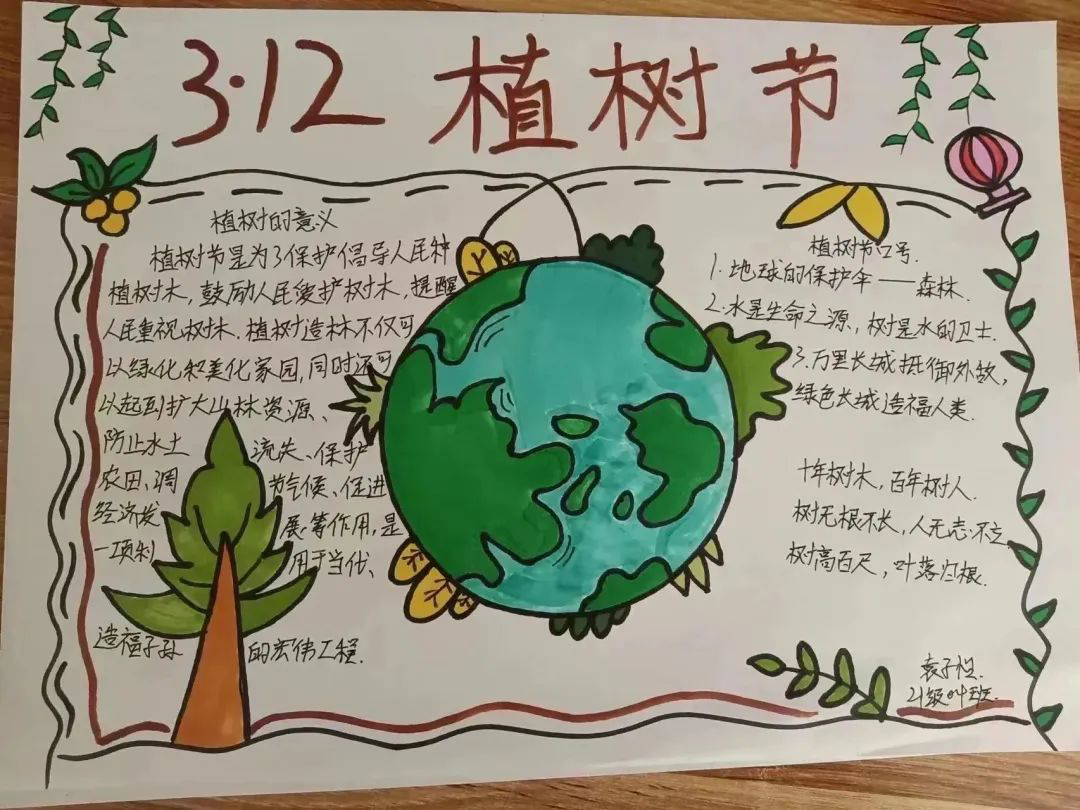 3·12 植树节
植树的意义
植树节是为了保护倡导人民种
植树木,鼓励人民爱护树木,提醒
人民重视树木.植树造林不仅可
以绿化和美化家园,同时还可
以起到扩大山林资源、
防止水土流失、保护
农田、调节气候、促进
经济发展等作用,是
一项利用于当代、
造福子孙的宏伟工程.
植树节口号.
1.地球的保护伞——森林.
2.水是生命之源,树是水的卫士.
3.万里长城抵御外敌,
绿色长城造福人类.
十年树木,百年树人.
树无根不长,人无志不立.
树高百尺,叶落归根.
袁子恒.
21级 班.